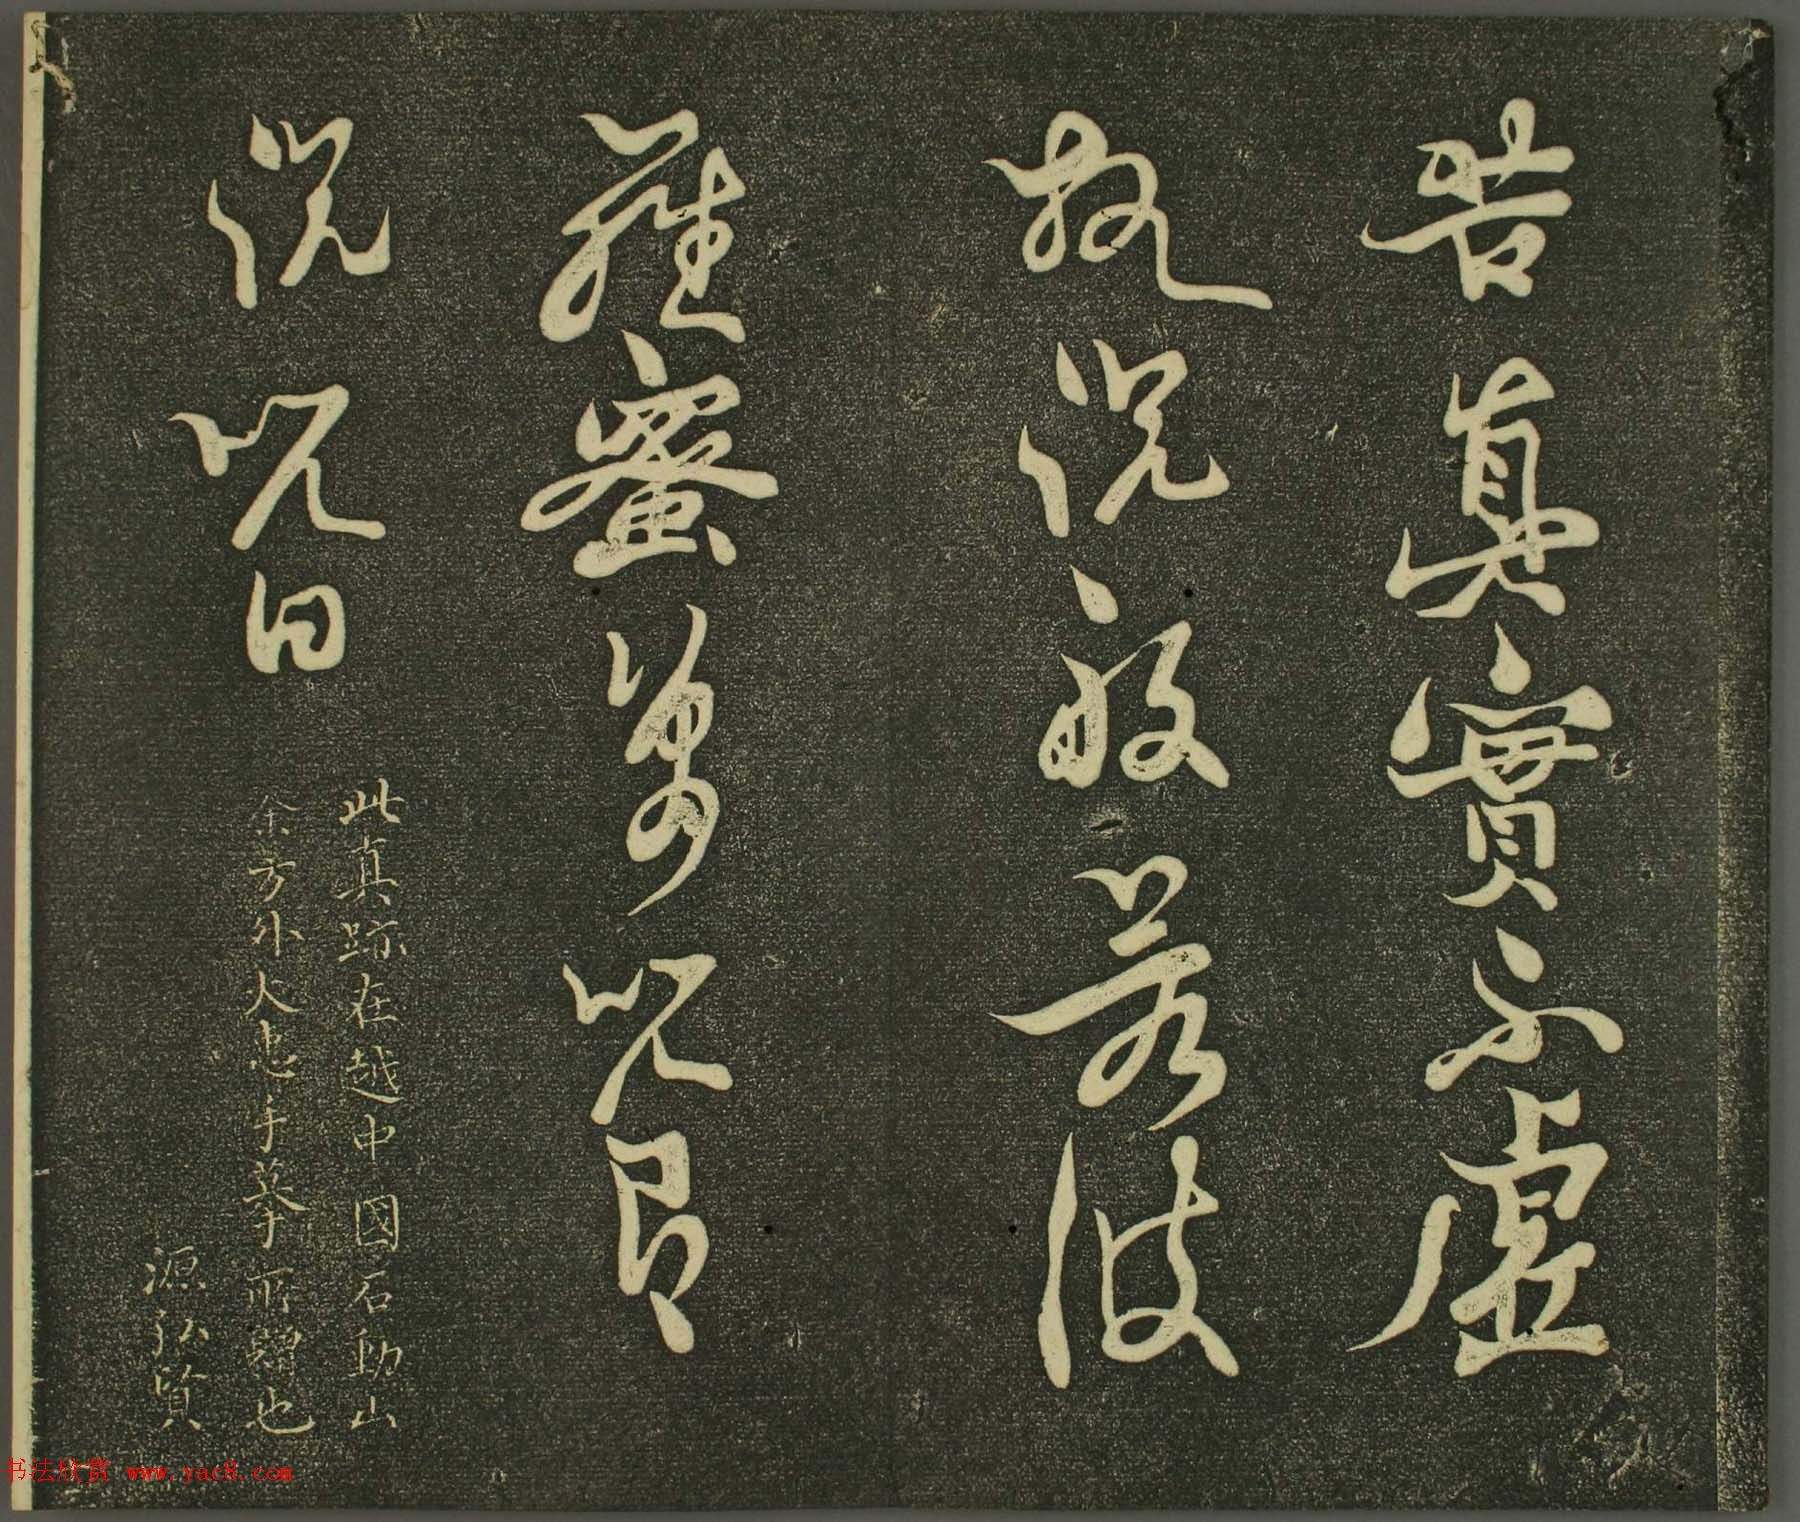 苦真實不虛
故説般若波
羅蜜多呪即
説呪曰
此真跡在越中國石動山
余方外人忠手摹所贈也
源弘賢
书法欣赏 www.yac8.com